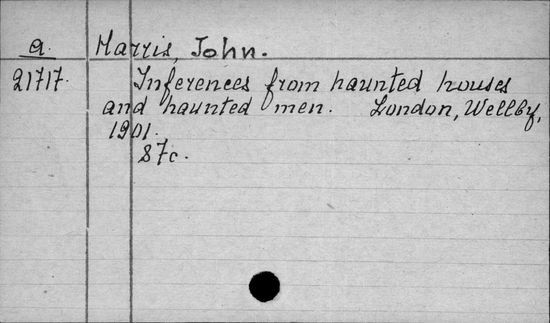 a. Harris, John.
21717. Inferences from haunted houses
and haunted men. London, Wellby,
1901.
87c.